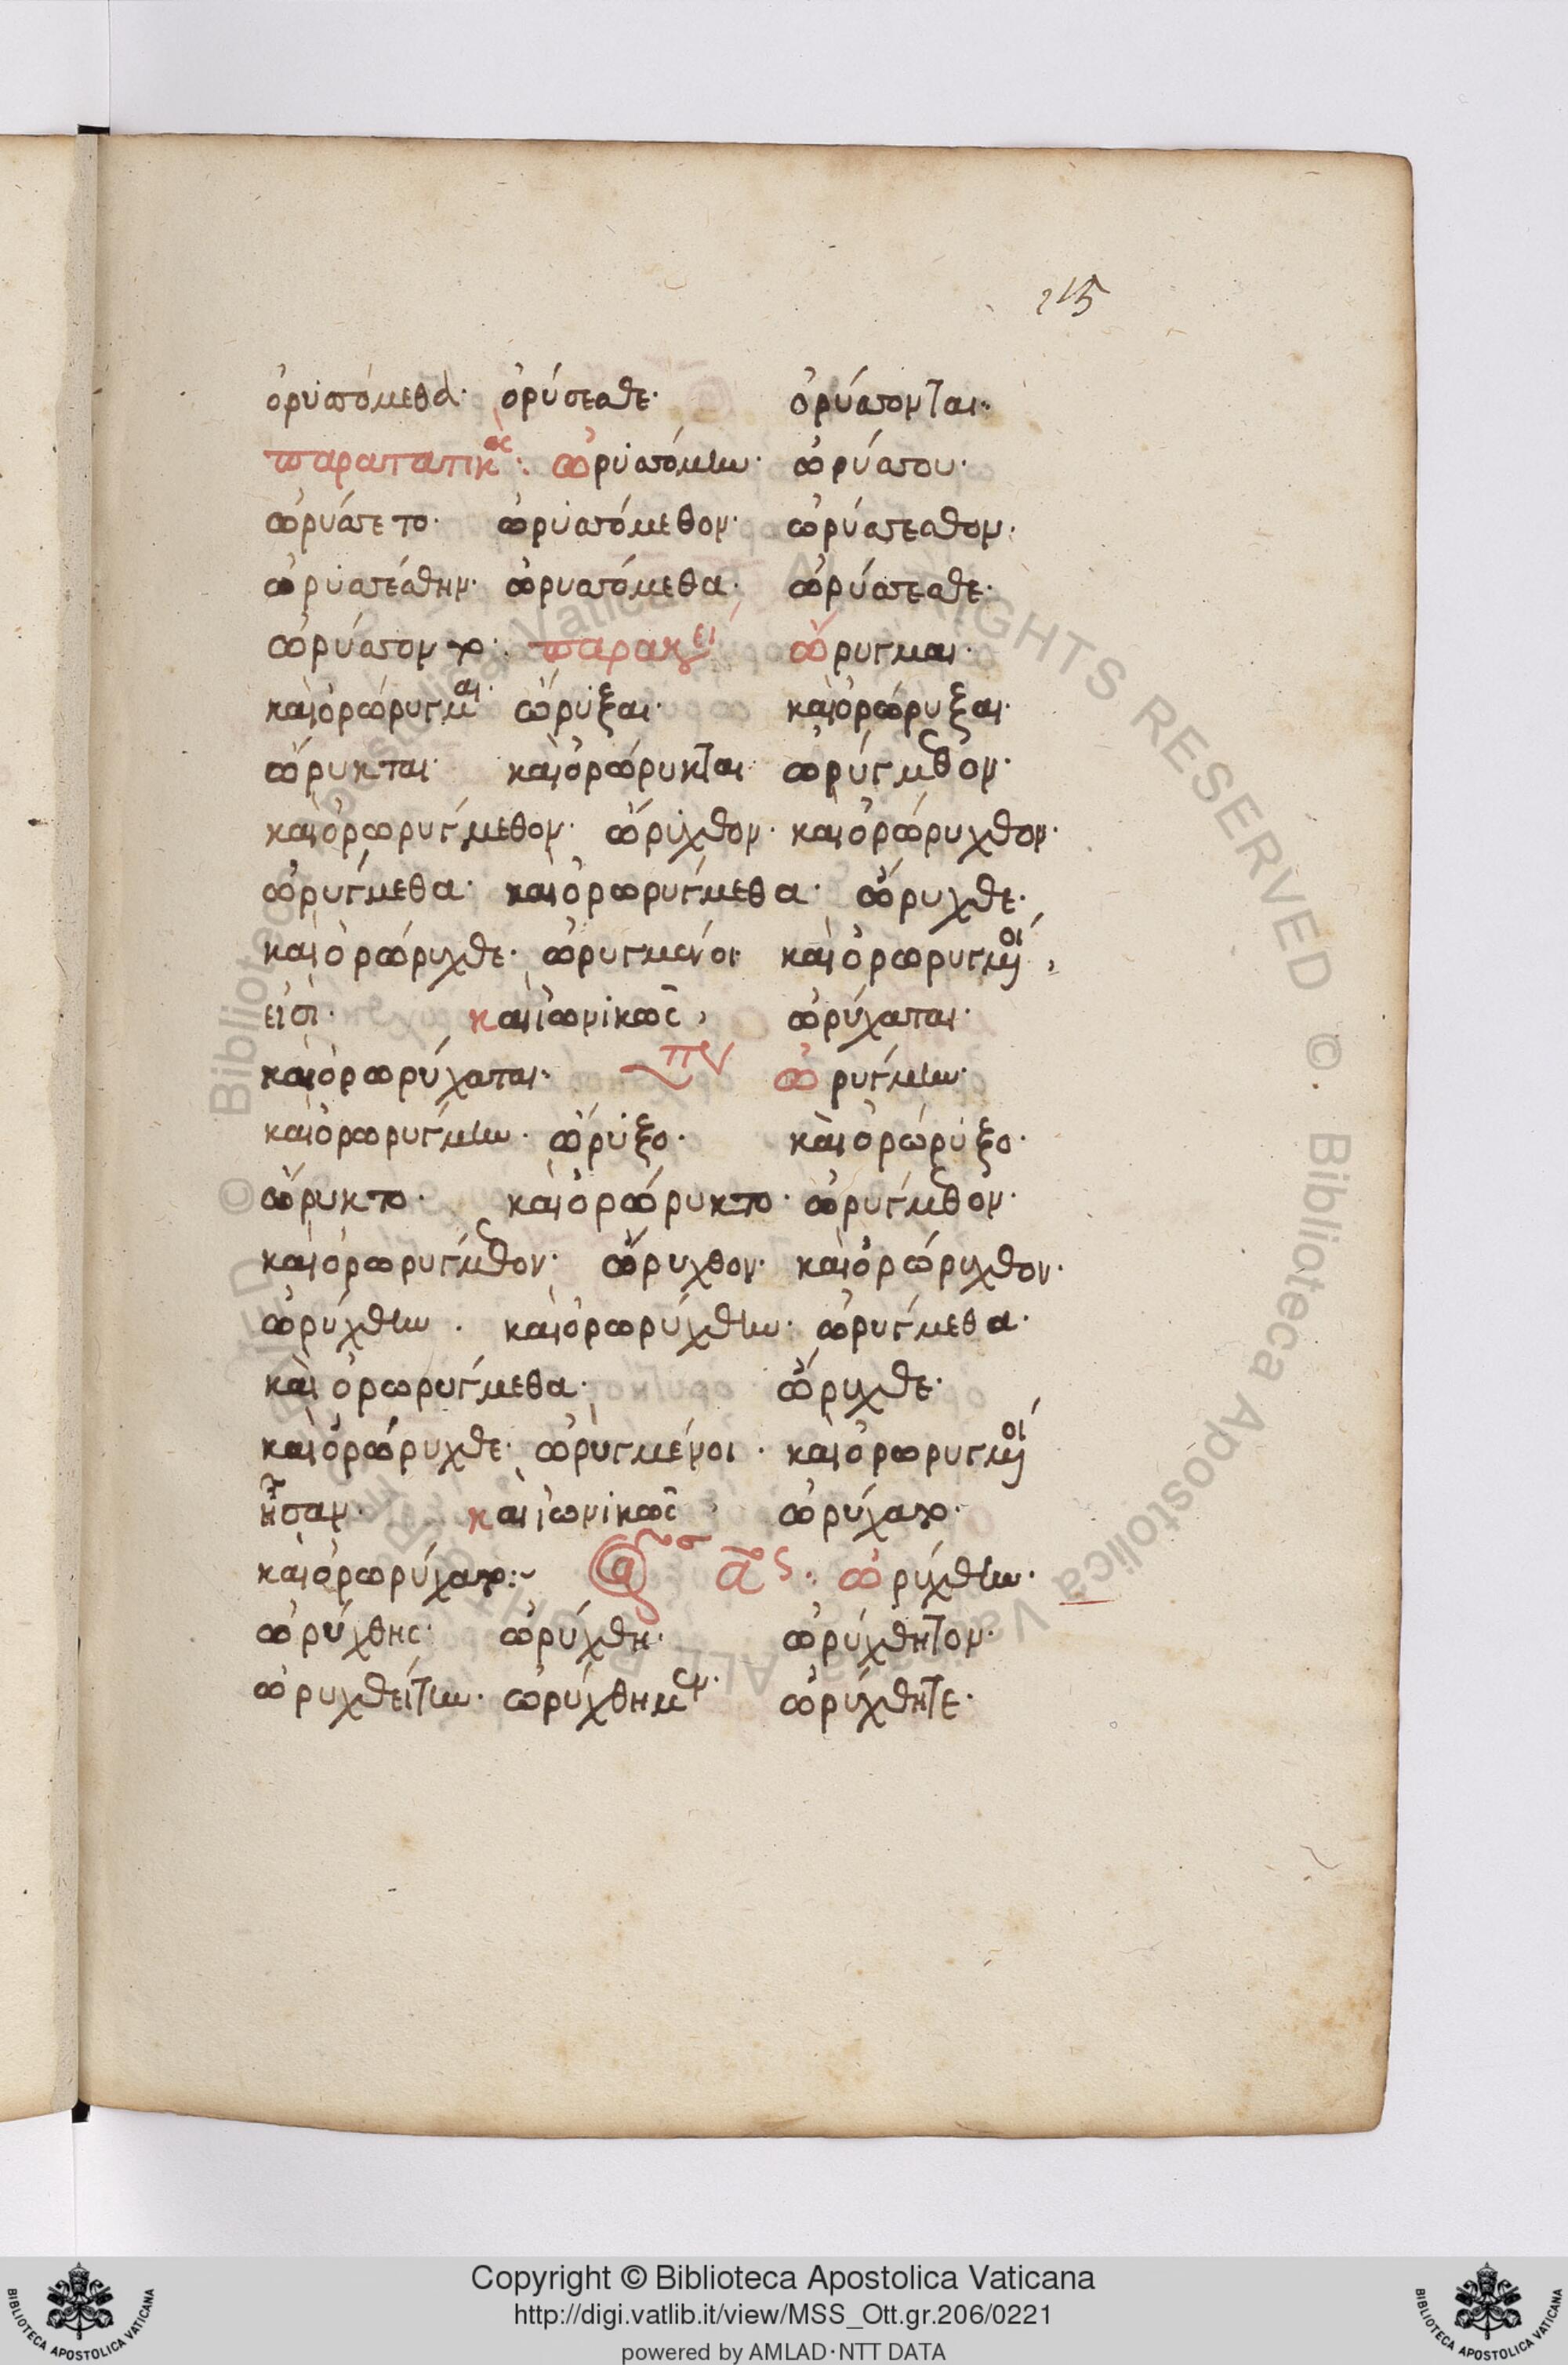 215
ὀρυσσόμεθα· ὀρύσσεσθε· ὀρύσσονται·
παρατατικὸς: ὠρυσσόμην· ὠρύσσου·
ὠρύσσετο· ὠρυσσόμεθον· ὠρύσσεσθον·
ὠρυσσέσθην· ὠρυσσόμεθα· ὠρύσσεσθε·
ὠρύσσοντο· ὤρυγμαι·
καὶ ὀρώρυγμαι· ὤρυξαι· καὶ ὀρώρυξαι·
ὤρυκται· καὶ ὀρώρυκται ὠρύγμεθον·
καὶ ὀρωρύγμεθον· ὤρυχθον· καὶ ὀρώρυχθον·
ὠρύγμεθα· καὶ ὀρωρύγμεθα· ὤρυχθε·
καὶ ὀρώρυχθε· ὠρυγμένοι· καὶ ὀρωρυγμένοι,
εἰσὶ· καὶ ἰωνικῶς, ὠρύχαται·
καὶ ὀρωρύχαται· ὠρύγμην·
καὶ ὀρωρύγμην· ὤρυξο· καὶ ὀρώρυξο·
ὤρυκτο· καὶ ὀρώρυκτο· ὠρύγμεθον·
καὶ ὀρωρύγμεθον· ὤρυχθον· καὶ ὀρώρυχθον·
ὠρύχθην· καὶ ὀρωρύχθην· ὠρύγμεθα·
καὶ ὀρωρύγμεθα· ὤρυχθε·
καὶ ὀρώρυχθε· ὠρυγμένοι· καὶ ὀρωρυγμένοι
ἦσαν· καὶ ἰωνικῶς, ὠρύχατο·
καὶ ὀρωρύχατο:~ ὠρύχθην·
ὠρύχθης· ὠρύχθη· ὠρύχθητον·
ὠρυχθείτην· ὠρύχθημεν· ὠρύχθητε·
© Biblioteca Apostolica Vaticana. ALL RIGHTS RESERVED
Copyright © Biblioteca Apostolica Vaticana
http://digi.vatlib.it/view/MSS_Ott.gr.206/0221
powered by AMLAD·NTT DATA
BIBLIOTECA APOSTOLICA VATICANA
BIBLIOTECA APOSTOLICA VATICANA